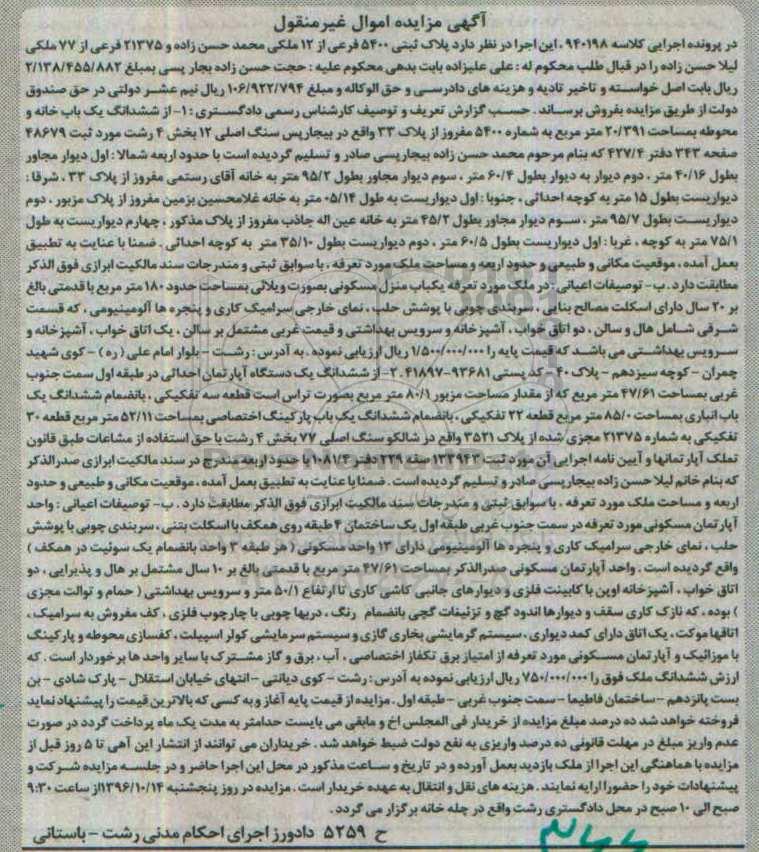 آگهی مزایده اموال غیرمنقول
در پرونده اجرایی کلاسه ۹۴۰۱۹۸، این اجرا در نظر دارد پلاک ثبتی ۵۴۰۰ فرعی از ۱۲ ملکی محمد حسن زاده و ۲۱۳۷۵ فرعی از ۷۷ ملکی
لیلا حسن زاده را در قبال طلب محکوم له : علی علیزاده بابت بدهی محکوم علیه : حجت حسن زاده بجار پسی بمبلغ ۲/۱۳۸/۴۵۵/۸۸۲
ریال بابت اصل خواسته و تاخیر تادیه و هزینه های دادرسی و حق الوکاله و مبلغ ۱۰۶/۹۲۲/۷۹۴ ریال نیم عشر دولتی در حق صندوق
دولت از طریق مزایده بفروش برساند . حسب گزارش تعریف و توصیف کارشناس رسمی دادگستری : ۱- از ششدانگ یک باب خانه و
محوطه بمساحت ۲۰/۳۹۱ متر مربع به شماره ۵۴۰۰ مفروز از پلاک ۳۳ واقع در بیجارپس سنگ اصلی ۱۲ بخش ۴ رشت مورد ثبت ۴۸۶۷۹
صفحه ۳۴۳ دفتر ۴۲۷/۴ که بنام مرحوم محمد حسن زاده بیجارپسی صادر و تسلیم گردیده است با حدود اربعه شمالا : اول دیوار مجاور
بطول ۴۰/۱۶ متر ، دوم دیوار به دیوار بطول ۶۰/۴ متر ، سوم دیوار مجاور بطول ۹۵/۲ متر به خانه آقای رستمی مفروز از پلاک ۳۳ ، شرقا :
دیواریست بطول ۱۵ متر به کوچه احداثی ، جنوبا : اول دیواریست به طول ۰۵/۱۴ متر به خانه غلامحسین بزمین مفروز از پلاک مزبور ، دوم
دیواریست بطول ۹۵/۷ متر ، سوم دیوار مجاور بطول ۴۵/۲ متر به خانه عین اله جاذب مفروز از پلاک مذکور ، چهارم دیواریست به طول
۷۵/۱ متر به کوچه ، غربا : اول دیواریست بطول ۶۰/۵ متر ، دوم دیواریست بطول ۳۵/۱۰ متر به کوچه احداثی . ضمنا با عنایت به تطبیق
بعمل آمده ، موقعیت مکانی و طبیعی و حدود اربعه و مساحت ملک مورد تعرفه ، با سوابق ثبتی و مندرجات سند مالکیت ابرازی فوق الذکر
مطابقت دارد . ب- توصیفات اعیانی : در ملک مورد تعرفه یکباب منزل مسکونی بصورت ویلائی بمساحت حدود ۱۸۰ متر مربع با قدمتی بالغ
بر ۲۰ سال دارای اسکلت مصالح بنایی ، سربندی چوبی با پوشش حلب ، نمای خارجی سرامیک کاری و پنجره ها آلومینیومی ، که قسمت
شرقی شامل هال و سالن ، دو اتاق خواب ، آشپزخانه و سرویس بهداشتی و قیمت غربی مشتمل بر سالن ، یک اتاق خواب ، آشپزخانه و
سرویس بهداشتی می باشد که قیمت پایه را ۱/۵۰۰/۰۰۰/۰۰۰ ریال ارزیابی نموده . به آدرس : رشت - بلوار امام علی ( ره ) - کوی شهید
چمران - کوچه سیزدهم - پلاک ۴۰ - کد پستی ۹۳۶۸۱-۴۱۸۹۷ . ۲- از ششدانگ یک دستگاه آپارتمان احداثی در طبقه اول سمت جنوب
غربی بمساحت ۴۷/۶۱ متر مربع که از مقدار مساحت مزبور ۸۰/۱ متر مربع بصورت تراس است قطعه سه تفکیکی ، بانضمام ششدانگ یک
باب انباری بمساحت ۸۵/۰ متر مربع قطعه ۲۲ تفکیکی ، بانضمام ششدانگ یک باب پارکینگ اختصاصی بمساحت ۵۲/۱۱ متر مربع قطعه ۳۰
تفکیکی به شماره ۲۱۳۷۵ مجزی شده از پلاک ۳۵۲۱ واقع در شالکو سنگ اصلی ۷۷ بخش ۴ رشت با حق استفاده از مشاعات طبق قانون
تملک آپارتمانها و آیین نامه اجرایی آن مورد ثبت ۱۳۳۹۴۳ صفه ۲۲۹ دفتر ۱۰۸۷/۴ با حدود اربعه مندرج در سند مالکیت ابرازی صدرالذکر
که بنام خانم لیلا حسن زاده بیجارپسی صادر و تسلیم گردیده است . ضمنا با عنایت به تطبیق بعمل آمده ، موقعیت مکانی و طبیعی و حدود
اربعه و مساحت ملک مورد تعرفه ، با سوابق ثبتی و مندرجات سند مالکیت ابرازی فوق الذکر مطابقت دارد . ب- توصیفات اعیانی : واحد
آپارتمان مسکونی مورد تعرفه در سمت جنوب غربی طبقه اول یک ساختمان ۴ طبقه روی همکف با اسکلت بتنی ، سربندی چوبی با پوشش
حلب ، نمای خارجی سرامیک کاری و پنجره ها آلومینیومی دارای ۱۳ واحد مسکونی ( هر طبقه ۳ واحد بانضمام یک سوئیت در همکف )
واقع گردیده است . واحد آپارتمان مسکونی صدرالذکر بمساحت ۴۷/۶۱ متر مربع با قدمتی بالغ بر ۱۰ سال مشتمل بر هال و پذیرایی ، دو
اتاق خواب ، آشپزخانه اوپن با کابینت فلزی و دیوارهای جانبی کاشی کاری تا ارتفاع ۵۰/۱ متر و سرویس بهداشتی ( حمام و توالت مجزی
) بوده ، که نازک کاری سقف و دیوارها اندود گچ و تزئینات گچی بانضمام رنگ ، دربها چوبی با چارچوب فلزی ، کف مفروش به سرامیک ،
اتاقها موکت ، یک اتاق دارای کمد دیواری ، سیستم گرمایشی بخاری گازی و سیستم سرمایشی کولر اسپیلت ، کفسازی محوطه و پارکینگ
با موزائیک و آپارتمان مسکونی مورد تعرفه از امتیاز برق تکفاز اختصاصی ، آب ، برق و گاز مشترک با سایر واحد ها برخوردار است . که
ارزش ششدانگ ملک فوق را ۷۵۰/۰۰۰/۰۰۰ ریال ارزیابی نموده به آدرس : رشت - کوی دیانتی - انتهای خیابان استقلال - پارک شادی - بن
بست پانزدهم - ساختمان فاطیما - سمت جنوب غربی - طبقه اول . مزایده از قیمت پایه آغاز و به کسی که بالاترین قیمت را پیشنهاد نماید
فروخته خواهد شد ده درصد مبلغ مزایده از خریدار فی المجلس اخ و مابقی می بایست حداکثر به مدت یک ماه پرداخت گردد در صورت
عدم واریز مبلغ در مهلت قانونی ده درصد واریزی به نفع دولت ضبط خواهد شد . خریداران می توانند از انتشار این آهی تا ۵ روز قبل از
مزایده با هماهنگی این اجرا از ملک بازدید بعمل آورده و در تاریخ و ساعت مذکور در محل این اجرا حاضر و در جلسه مزایده شرکت و
پیشنهادات خود را حضورا ارایه نمایند . هزینه های نقل و انتقال به عهده خریدار است . مزایده در روز پنجشنبه ۱۳۹۶/۱۰/۱۴ از ساعت ۹:۳۰
صبح الی ۱۰ صبح در محل دادگستری رشت واقع در چله خانه برگزار می گردد .
ح ۵۲۵۹ دادورز اجرای احکام مدنی رشت - باستانی